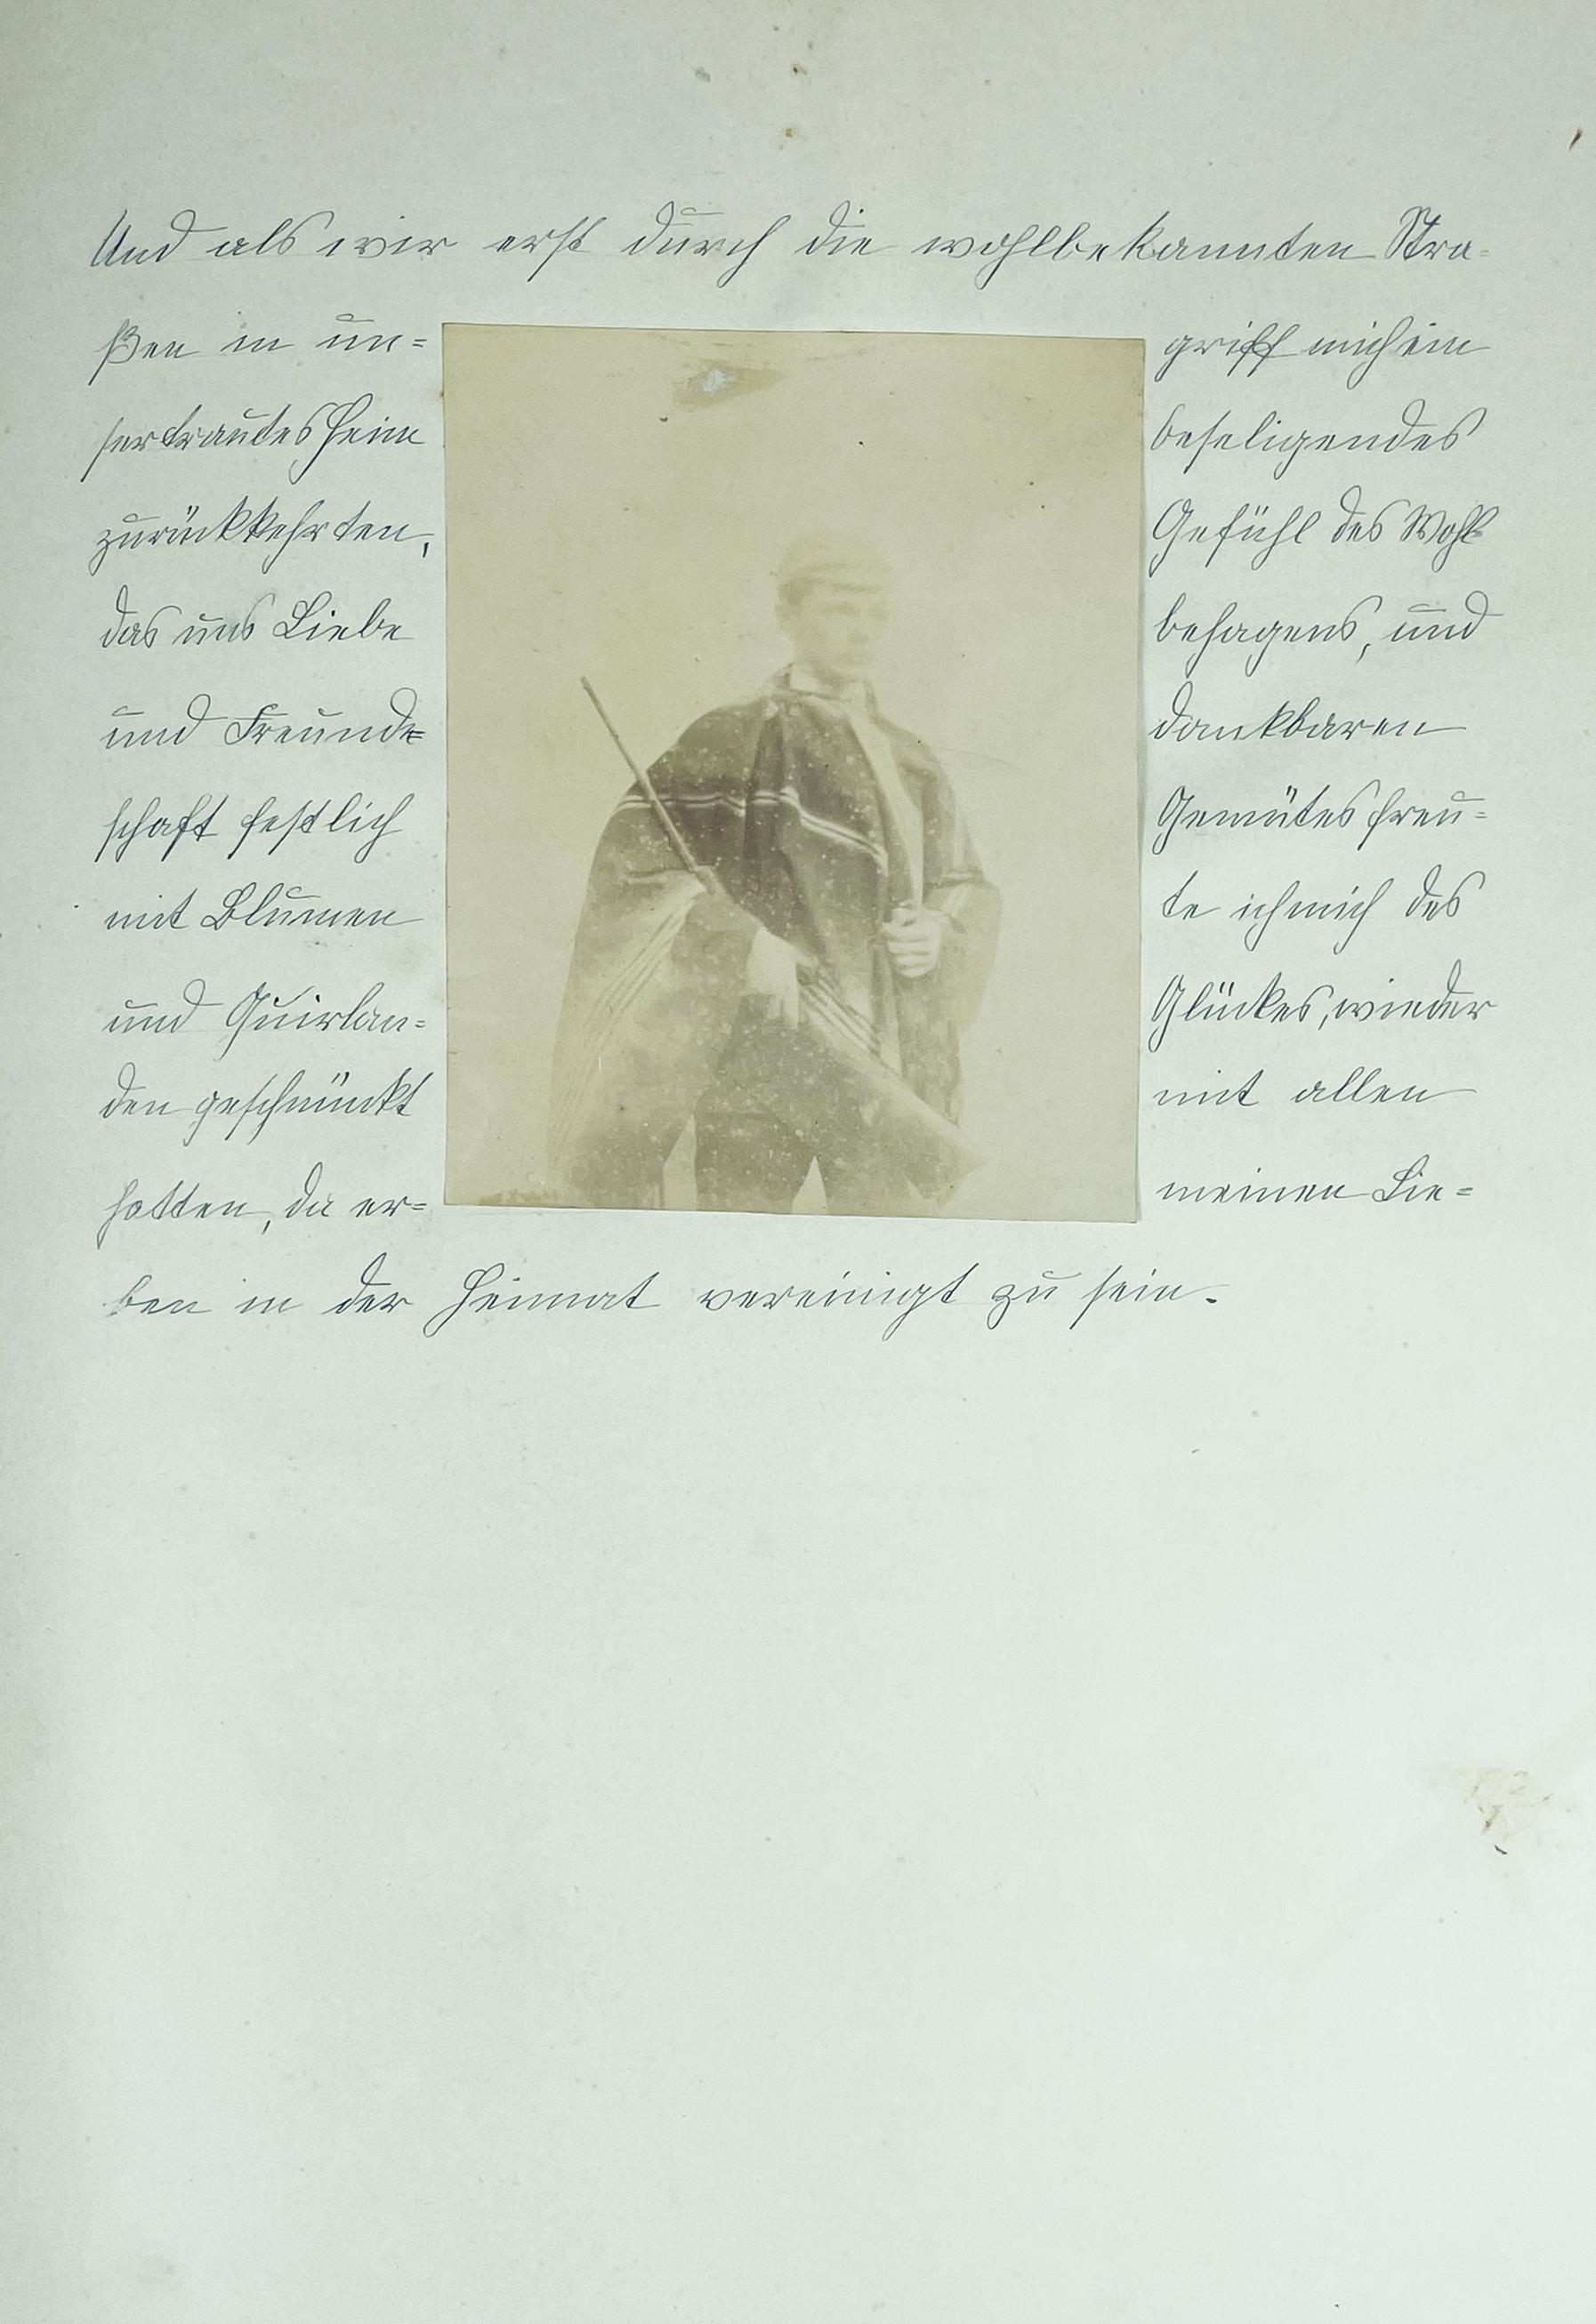 Und als wir erst durch die wohlbekannten Stra-
ßen in un=
ser trautes Heim
zurückkehrten,
das uns Liebe
und Freund=
schaft festlich
mit Blumen
und Guirlan=
den geschmückt
hatten, da er=
griff mich ein
beseligendes
Gefühl des Wohl-
behagens, und
dankbaren
Gemütes freu=
te ich mich des
Glückes, wieder
mit allen
meinen Lie=
ben in der Heimat vereinigt zu sein.